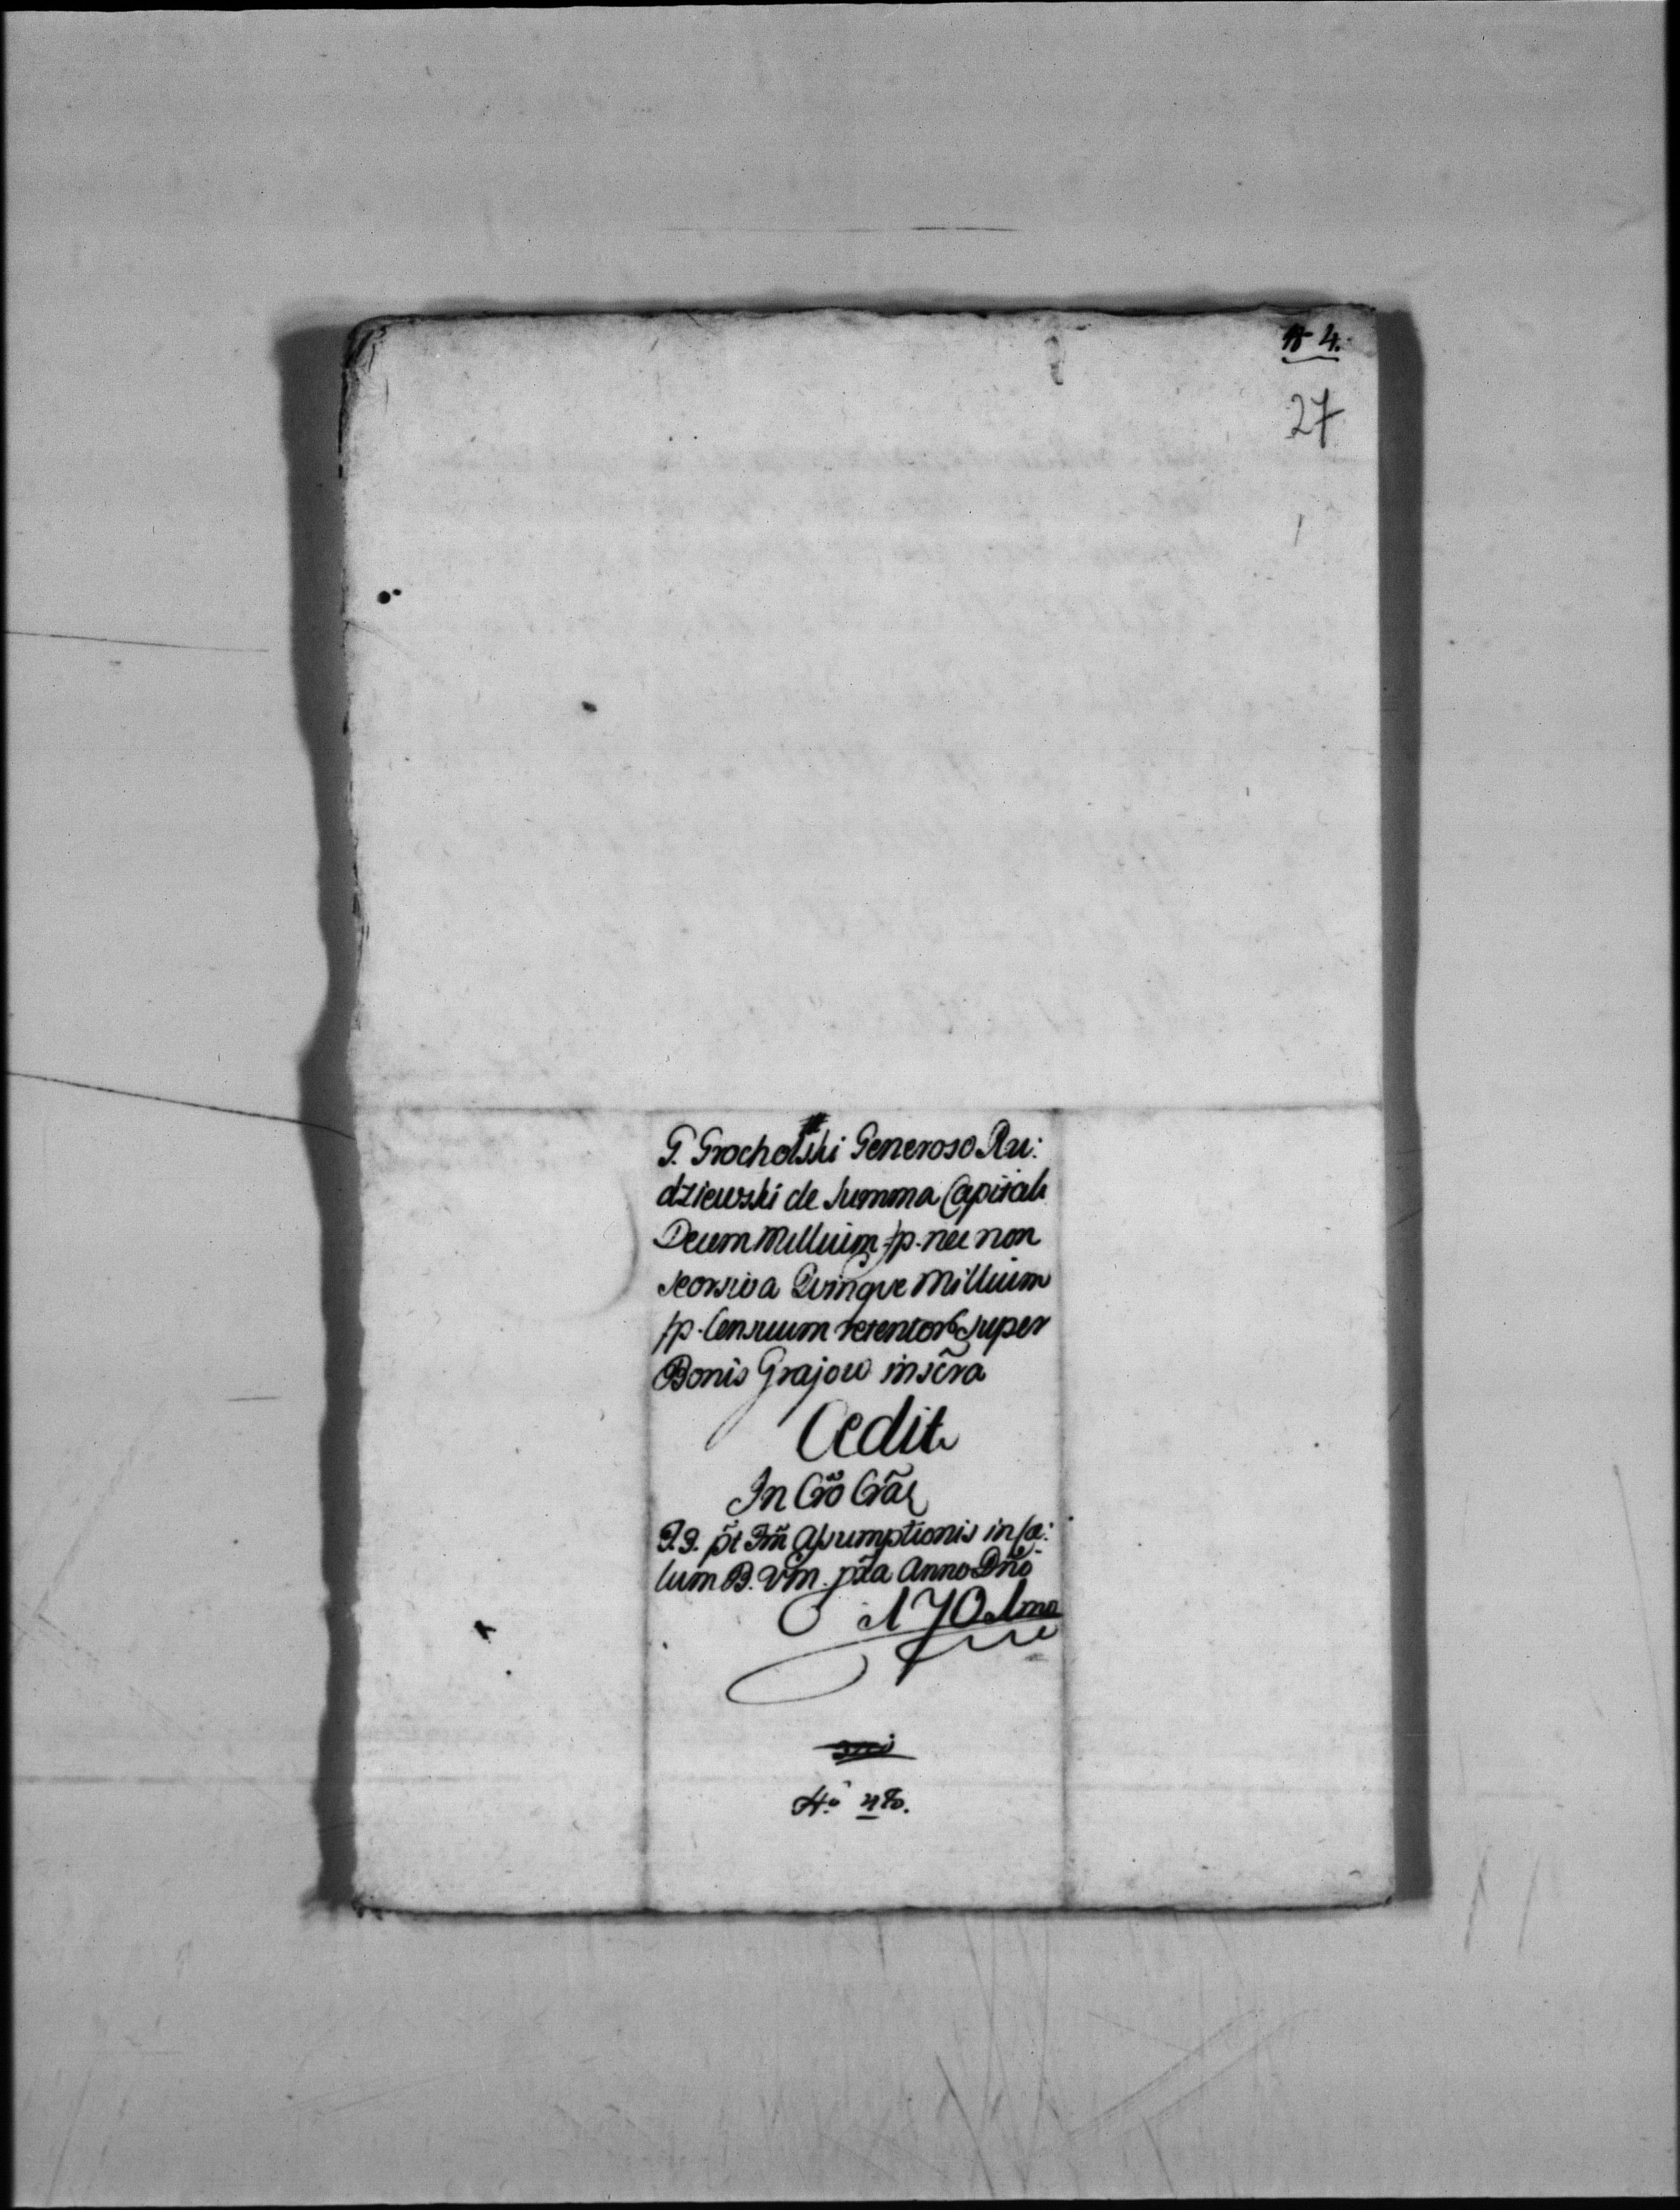 № 4.
27
G. Grocholski Generoso Ru:
dziewski de Summa Capitali
Decem Millium fp. nec non
seorsiva Quinque Millium
fp. Censuum retentorum super
Bonis Grajow inscra
Cedit
In Cro Crac
F. 3. pt Fm Assumptionis in Cæ:
lum B. V M. pxa Anno Dno
1701mo
N° 4to.